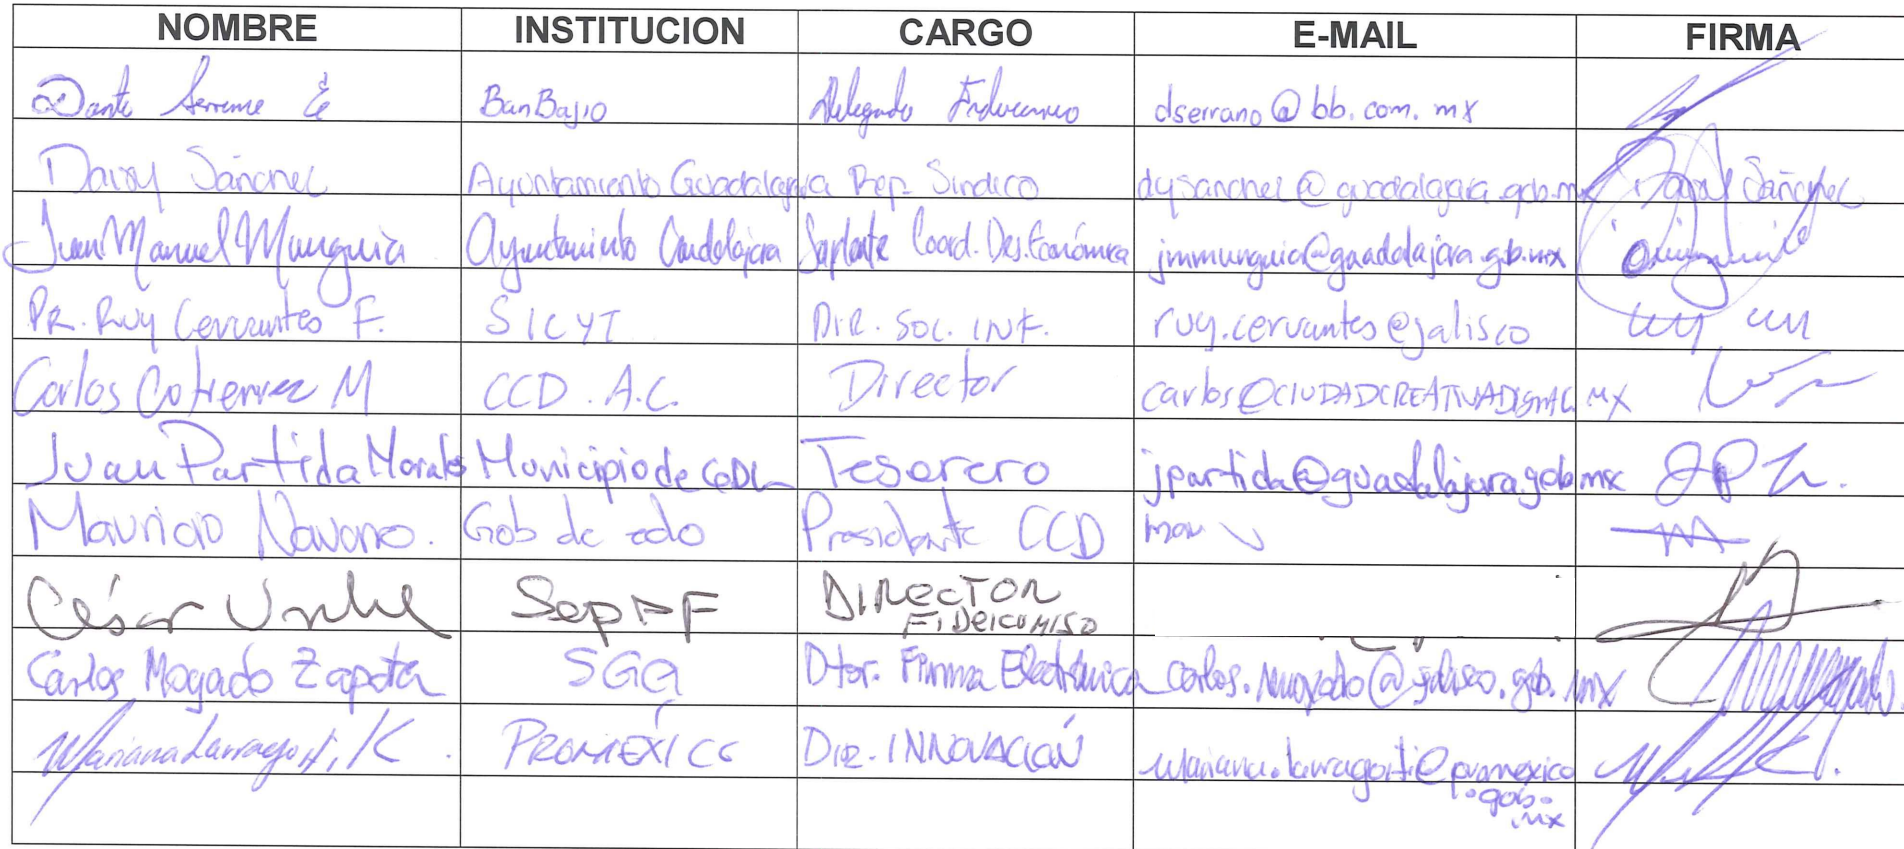 NOMBRE INSTITUCION CARGO E-MAIL FIRMA
Dante BanBajio Delegado Fiduciario dserrano@bb.com.mx
Daisy Sánchez Ayuntamiento Guadalajara Rep. Sindico dysanchez@guadalajara.gob.mx Sánchez
Juan Manuel Munguia Ayuntamiento Guadalajara Suplente Coord. Des. Económico jmmunguia@guadalajara.gob.mx
Ruy Cervantes F. SICYT DIR. SOC. INF. ruy.cervantes@jalisco
Carlos Gutierrez M CCD. A.C. Director carlos@CIUDADCREATIVADIGITAL.MX
Juan Partida Morales Municipio de GDL Tesorero jpartida@guadalajara.gob.mx
Mauricio Navarro. Gob de edo Presidente CCD
César Uribe SepAF DIRECTOR FIDEICOMISO
Carlos Mogado Zapata SGG Dtor. Firma Electrónica carlos.mogado@jalisco.gob.mx
Mariana Larragoiti, K. PROMÉXICO DIR. INNOVACIÓN mariana.larragoiti@promexico
.gob.
mx